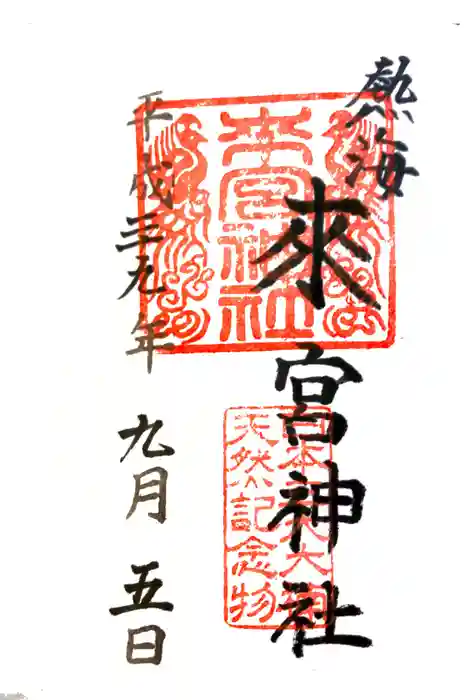 熱海
來宮神社
平成二九年 九月 五日
來宮神社
天然記念物